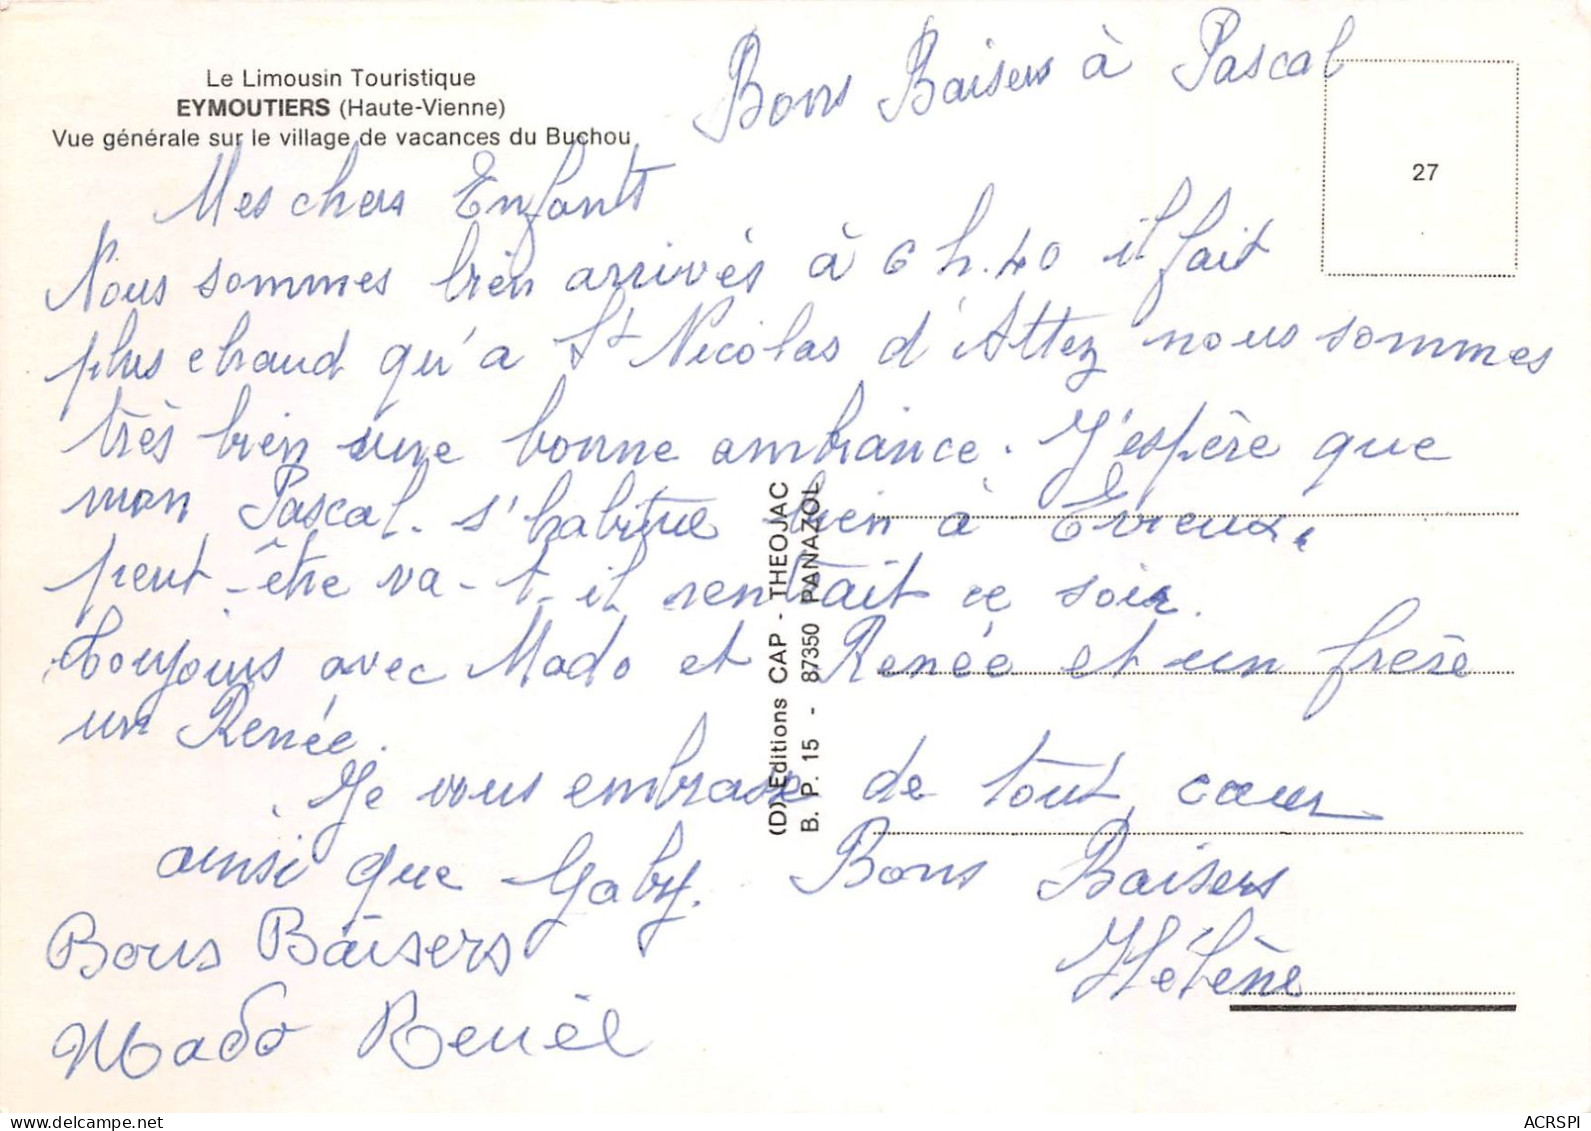 Le Limousin Touristique
EYMOUTIERS (Haute-Vienne)
Vue générale sur le village de vacances du Buchou
Bons Baisers à Pascal
27
Mes chers Enfants
Nous sommes bien arrivés à 6 h. 40 il fait
plus chaud qu'a St Nicolas d'Attez nous sommes
très bien une bonne ambiance. J'espère que
mon Pascal. s'habitue bien à Evreux.
peut-être va-t-il rentrait ce soir.
toujours avec Mado et Renée et un frère
un Renée.
Je vous embrasse de tout cœur
ainsi que Gaby. Bons Baisers
Hélène
Bons Baisers
Mado Renée
(D) Editions CAP - THEOJAC
B. P. 15 - 87350 PANAZOL
ACRSPI